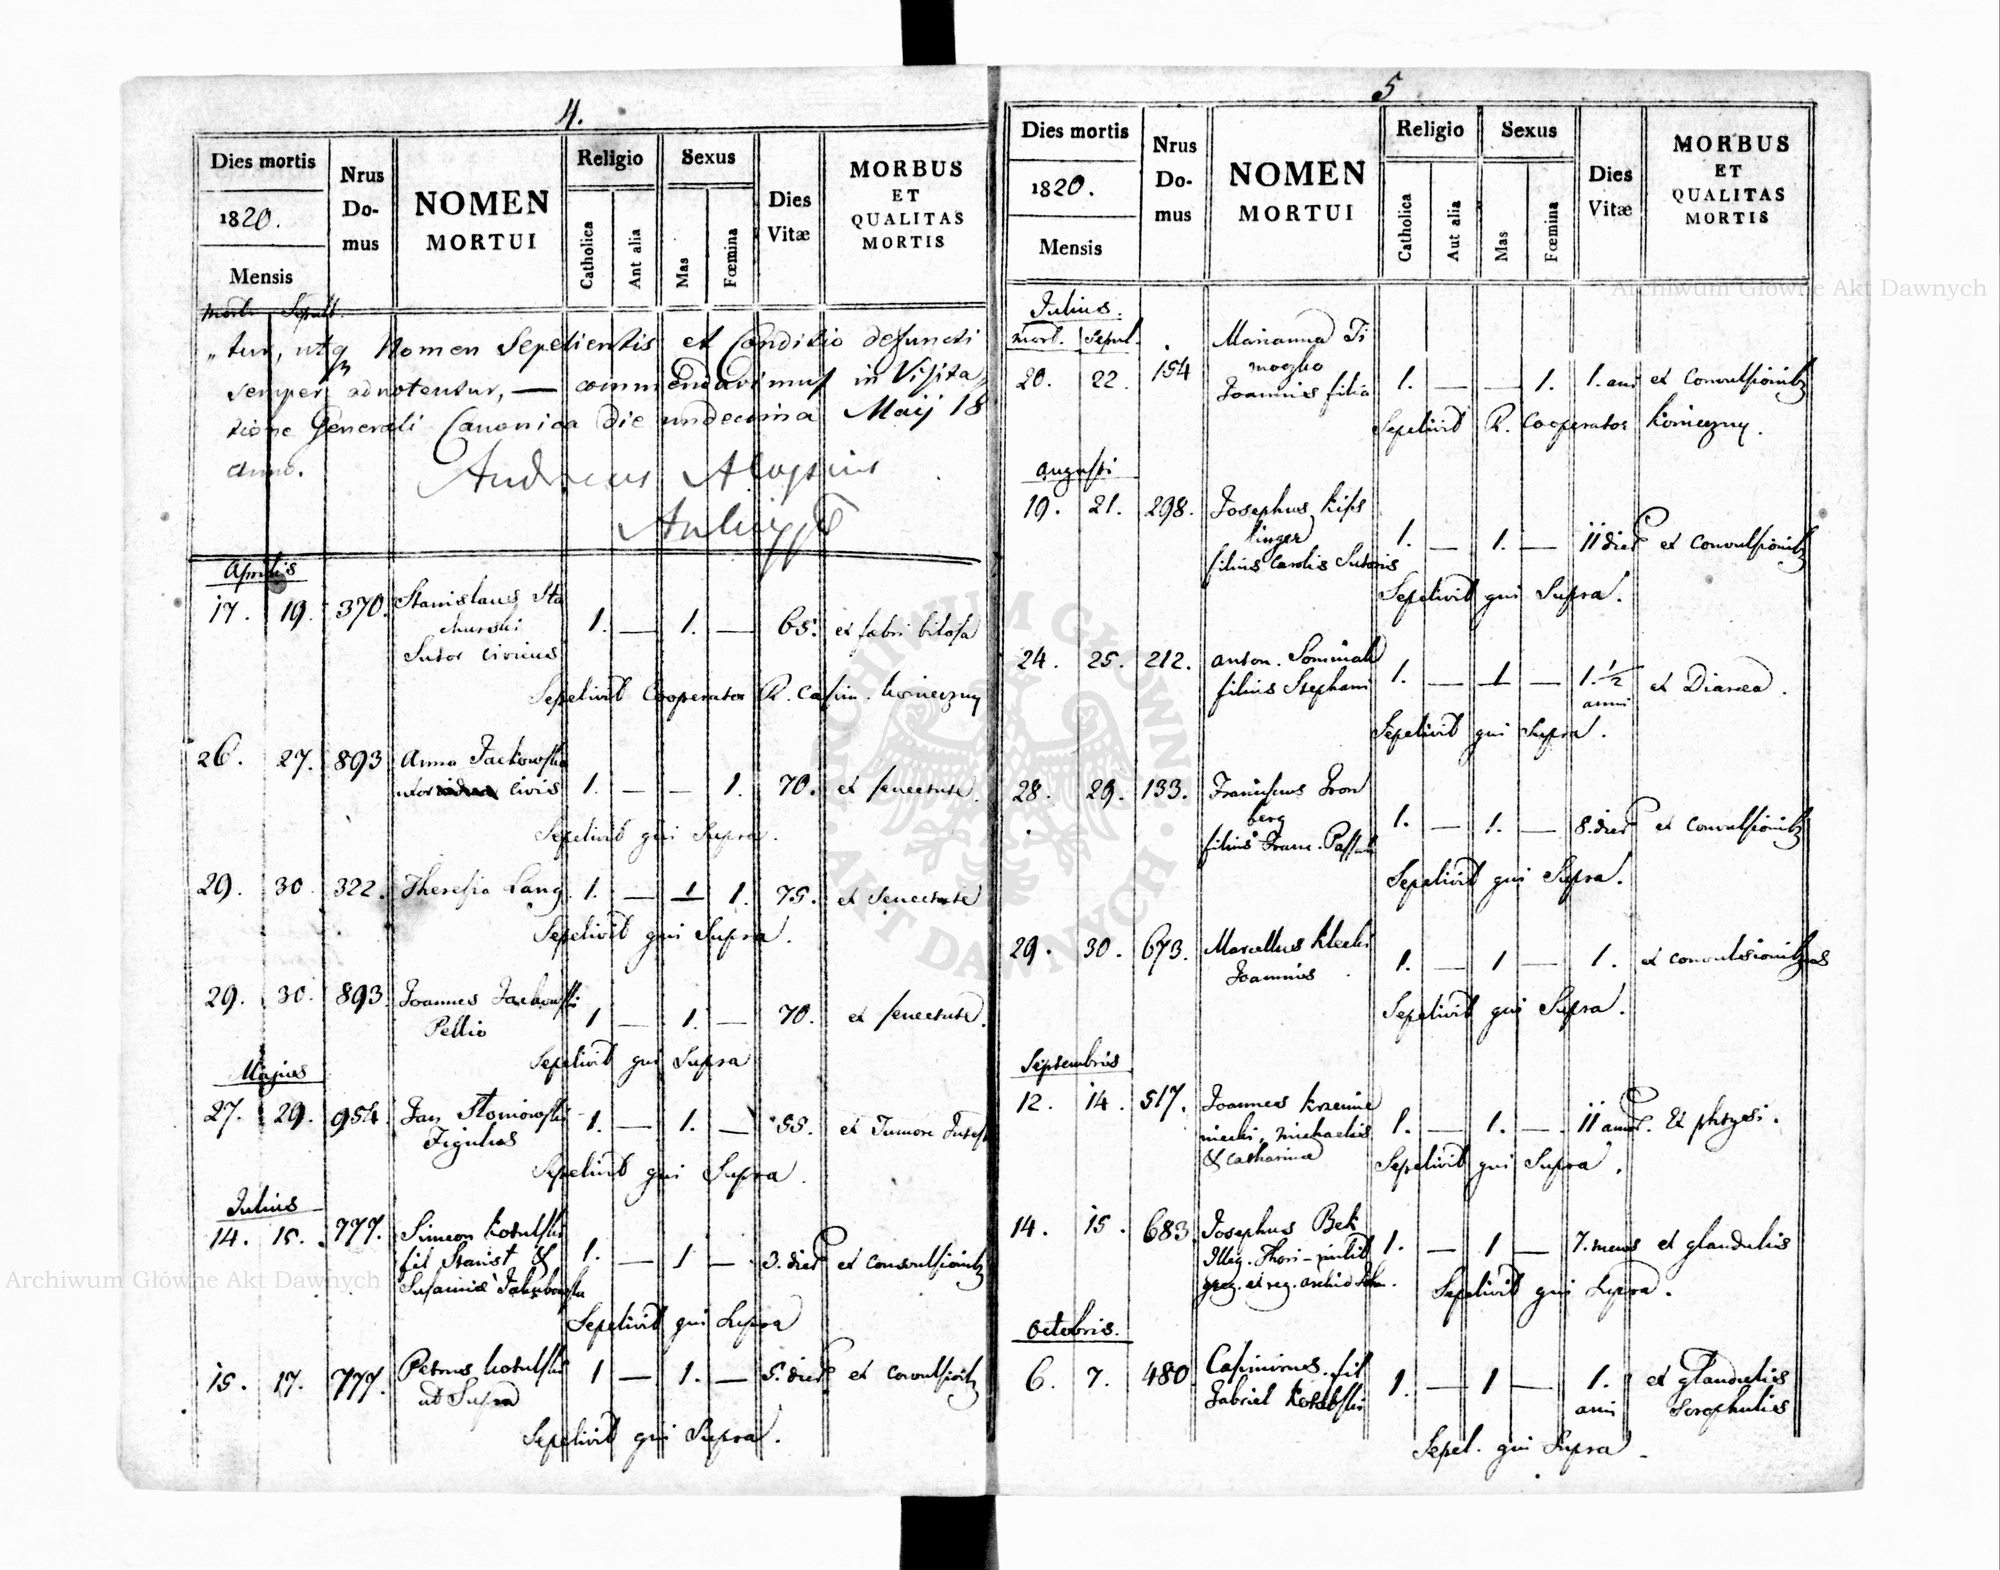 4.
Dies mortis
1820.
Mensis
Nrus Do-mus
NOMEN MORTUI
Religio
Catholica
Ant alia
Sexus
Mas
Fœmina
Dies Vitæ
MORBUS ET QUALITAS MORTIS
mort. Sepult.
„tur, utq Nomen Sepelientis et Conditio defuncti
semper adnotentur, — commendavimus in Visita„
tione Generali Canonica die undecima Maij 18
anno.
Andreas Aloysius
Aprilis
17. 19. 370. Stanislaus Sta
churski
Sutor civicus 1. — 1. — 65. ex febri biliosa
Sepelivit Cooperator R. Casim. Konieczny
26. 27. 893 Anna Jackowska
uxor civis 1. — — 1. 70. ex senectute.
Sepelivit qui Supra.
29. 30 322. Theresia Lang. 1. — 1 1. 75. ex Senectute
Sepelivit qui Supra.
29. 30. 893. Joannes Jackowski
Pellio 1 — 1. — 70. ex senectute.
Sepelivit qui Supra
Majus
27. 29. 954. Jan Stoniowski
Figulus 1. — 1. — 55. ex Tumore
Sepelivit qui Supra.
Julius
14. 15. 777. Simeon Kotulski
fil Stanisl &
Susannæ Jakubowska 1. — 1 — 3. dies ex convulsionib
Sepelivit qui Supra
15. 17. 777. Petrus Kotulski
ut Supra 1 — 1. — 5. dies ex convulsionib
Sepelivit qui Supra.
5
Dies mortis
1820.
Mensis
Nrus Do-mus
NOMEN MORTUI
Religio
Catholica
Aut alia
Sexus
Mas
Fœmina
Dies Vitæ
MORBUS ET QUALITAS MORTIS
Julius.
mort. Sepul.
20. 22. 154 Marianna Ti
moczko
Joannis filia 1. — — 1. 1. ani ex Convulsionib
Sepelivit R. Cooperator Konieczny.
Augusti
19. 21. 298. Josephus Kiss
linger
filius Caroli Sutoris 1. — 1. — 11 dies ex convulsionib
Sepelivit qui Supra.
24. 25. 212. Anton. Sominak
filius Stephani 1. — 1 — 1. 1/2
anni ex Diarœa.
Sepelivit qui Supra.
28. 29. 133. Franciscus Fron
berg
filius Franc. 1. — 1. — 8. dies ex convulsionib
Sepelivit qui Supra.
29. 30. 673. Marcellus Klecki
Joannis 1. — 1 — 1. ex convulsionibus
Sepelivit qui Supra.
Septembris
12. 14. 517. Joannes Krzemie
niecki, Michaelis
& Catharinæ 1. — 1. — 11 anno. Ex phtysi.
Sepelivit qui Supra.
14. 15. 683. Josephus Bek
Illeg. Thori - milit
greg. ex reg. 1. — 1 — 7. mens ex glandulis
Sepelivit qui Supra.
Octobris.
6. 7. 480 Casimirus. fil
Gabriel 1. — 1 — 1.
ani ex glandulis
Scrophulis
Sepel. qui Supra
Archiwum Główne Akt Dawnych
Archiwum Główne Akt Dawnych
ARCHIWUM GŁÓWNE · AKT DAWNYCH ·